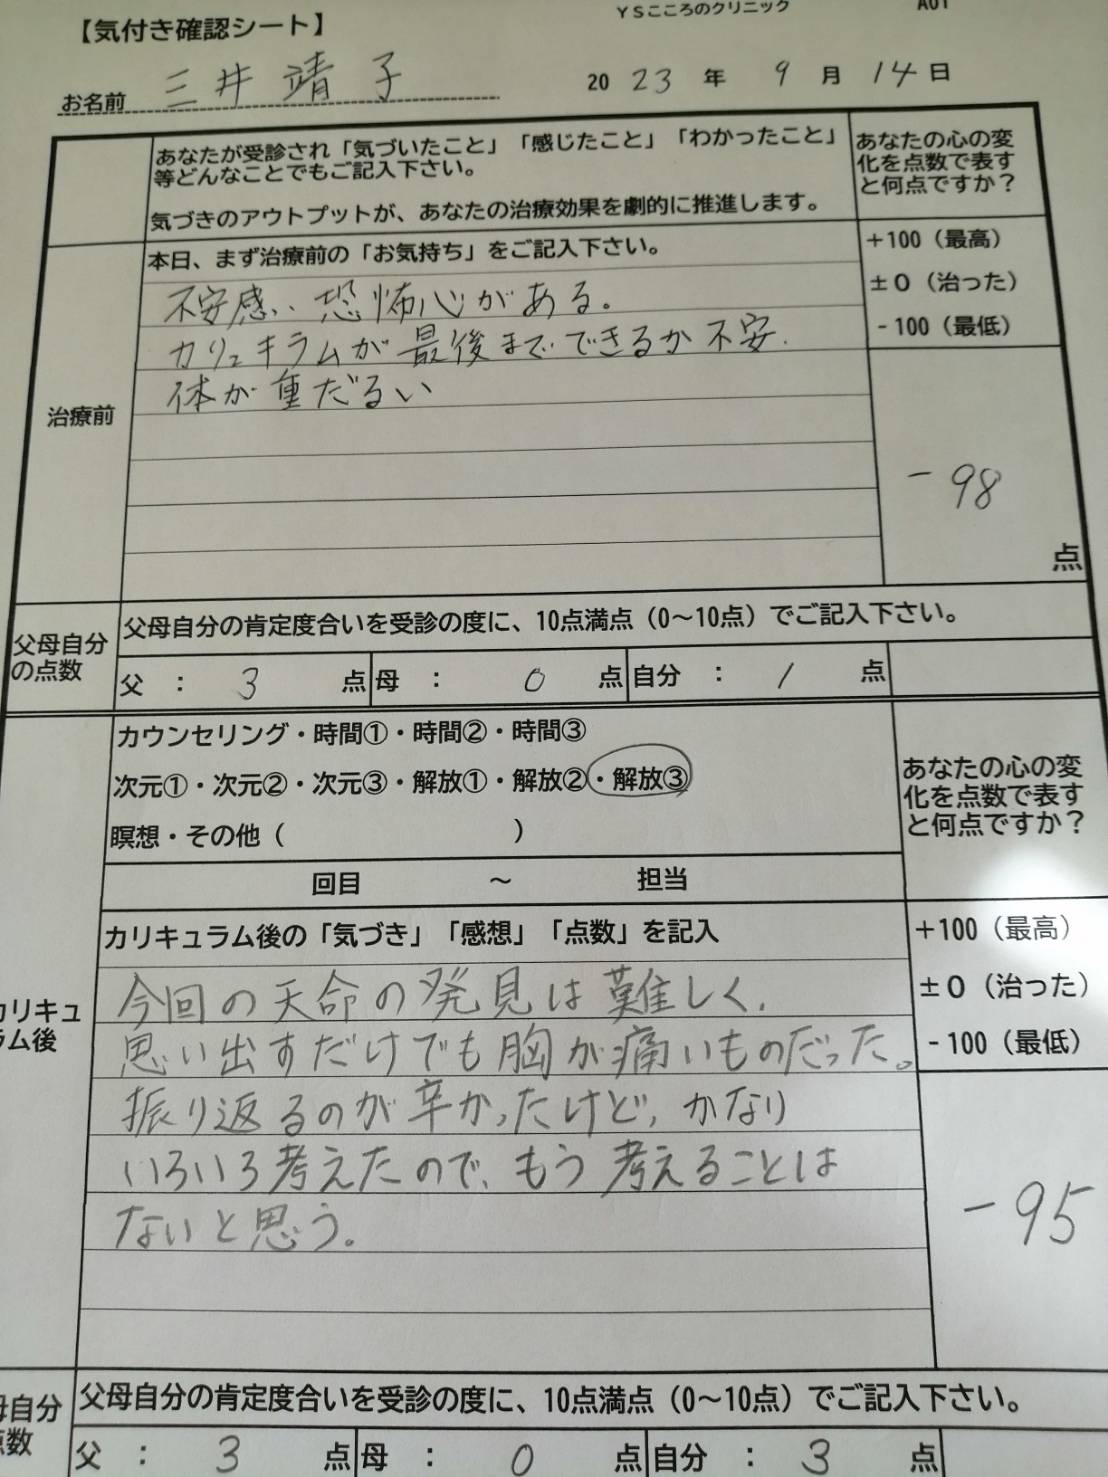 【気付き確認シート】
YSこころのクリニック
A01
お名前 三井 靖子
2023年 9月14日
あなたが受診され「気づいたこと」「感じたこと」「わかったこと」
等どんなことでもご記入下さい。
気づきのアウトプットが、あなたの治療効果を劇的に推進します。
あなたの心の変
化を点数で表す
と何点ですか？
治療前
本日、まず治療前の「お気持ち」をご記入下さい。
不安感、恐怖心がある。
カリュキラムが最後までできるか不安.
体が重だるい
+100（最高）
±0（治った）
-100（最低）
-98
点
父母自分
の点数
父母自分の肯定度合いを受診の度に、10点満点（0～10点）でご記入下さい。
父 ： 3 点 母 ： 0 点 自分 ： 1 点
カウンセリング・時間①・時間②・時間③
次元①・次元②・次元③・解放①・解放②・解放③
瞑想・その他（ ）
回目 ～ 担当
あなたの心の変
化を点数で表す
と何点ですか？
カリキュ
ラム後
カリキュラム後の「気づき」「感想」「点数」を記入
今回の天命の発見は難しく、
思い出すだけでも胸が痛いものだった。
振り返るのが辛かったけど、かなり
いろいろ考えたので、もう考えることは
ないと思う。
+100（最高）
±0（治った）
-100（最低）
-95
母自分
点数
父母自分の肯定度合いを受診の度に、10点満点（0～10点）でご記入下さい。
父 ： 3 点 母 ： 0 点 自分 ： 3 点